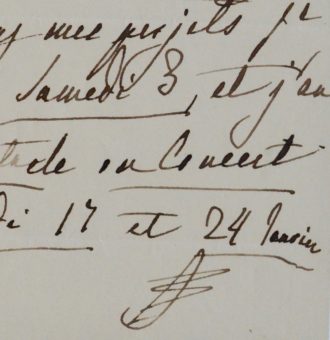 mes projets je
Samedi 3, et j'au
en Concert
di 17 et 24 Janvier